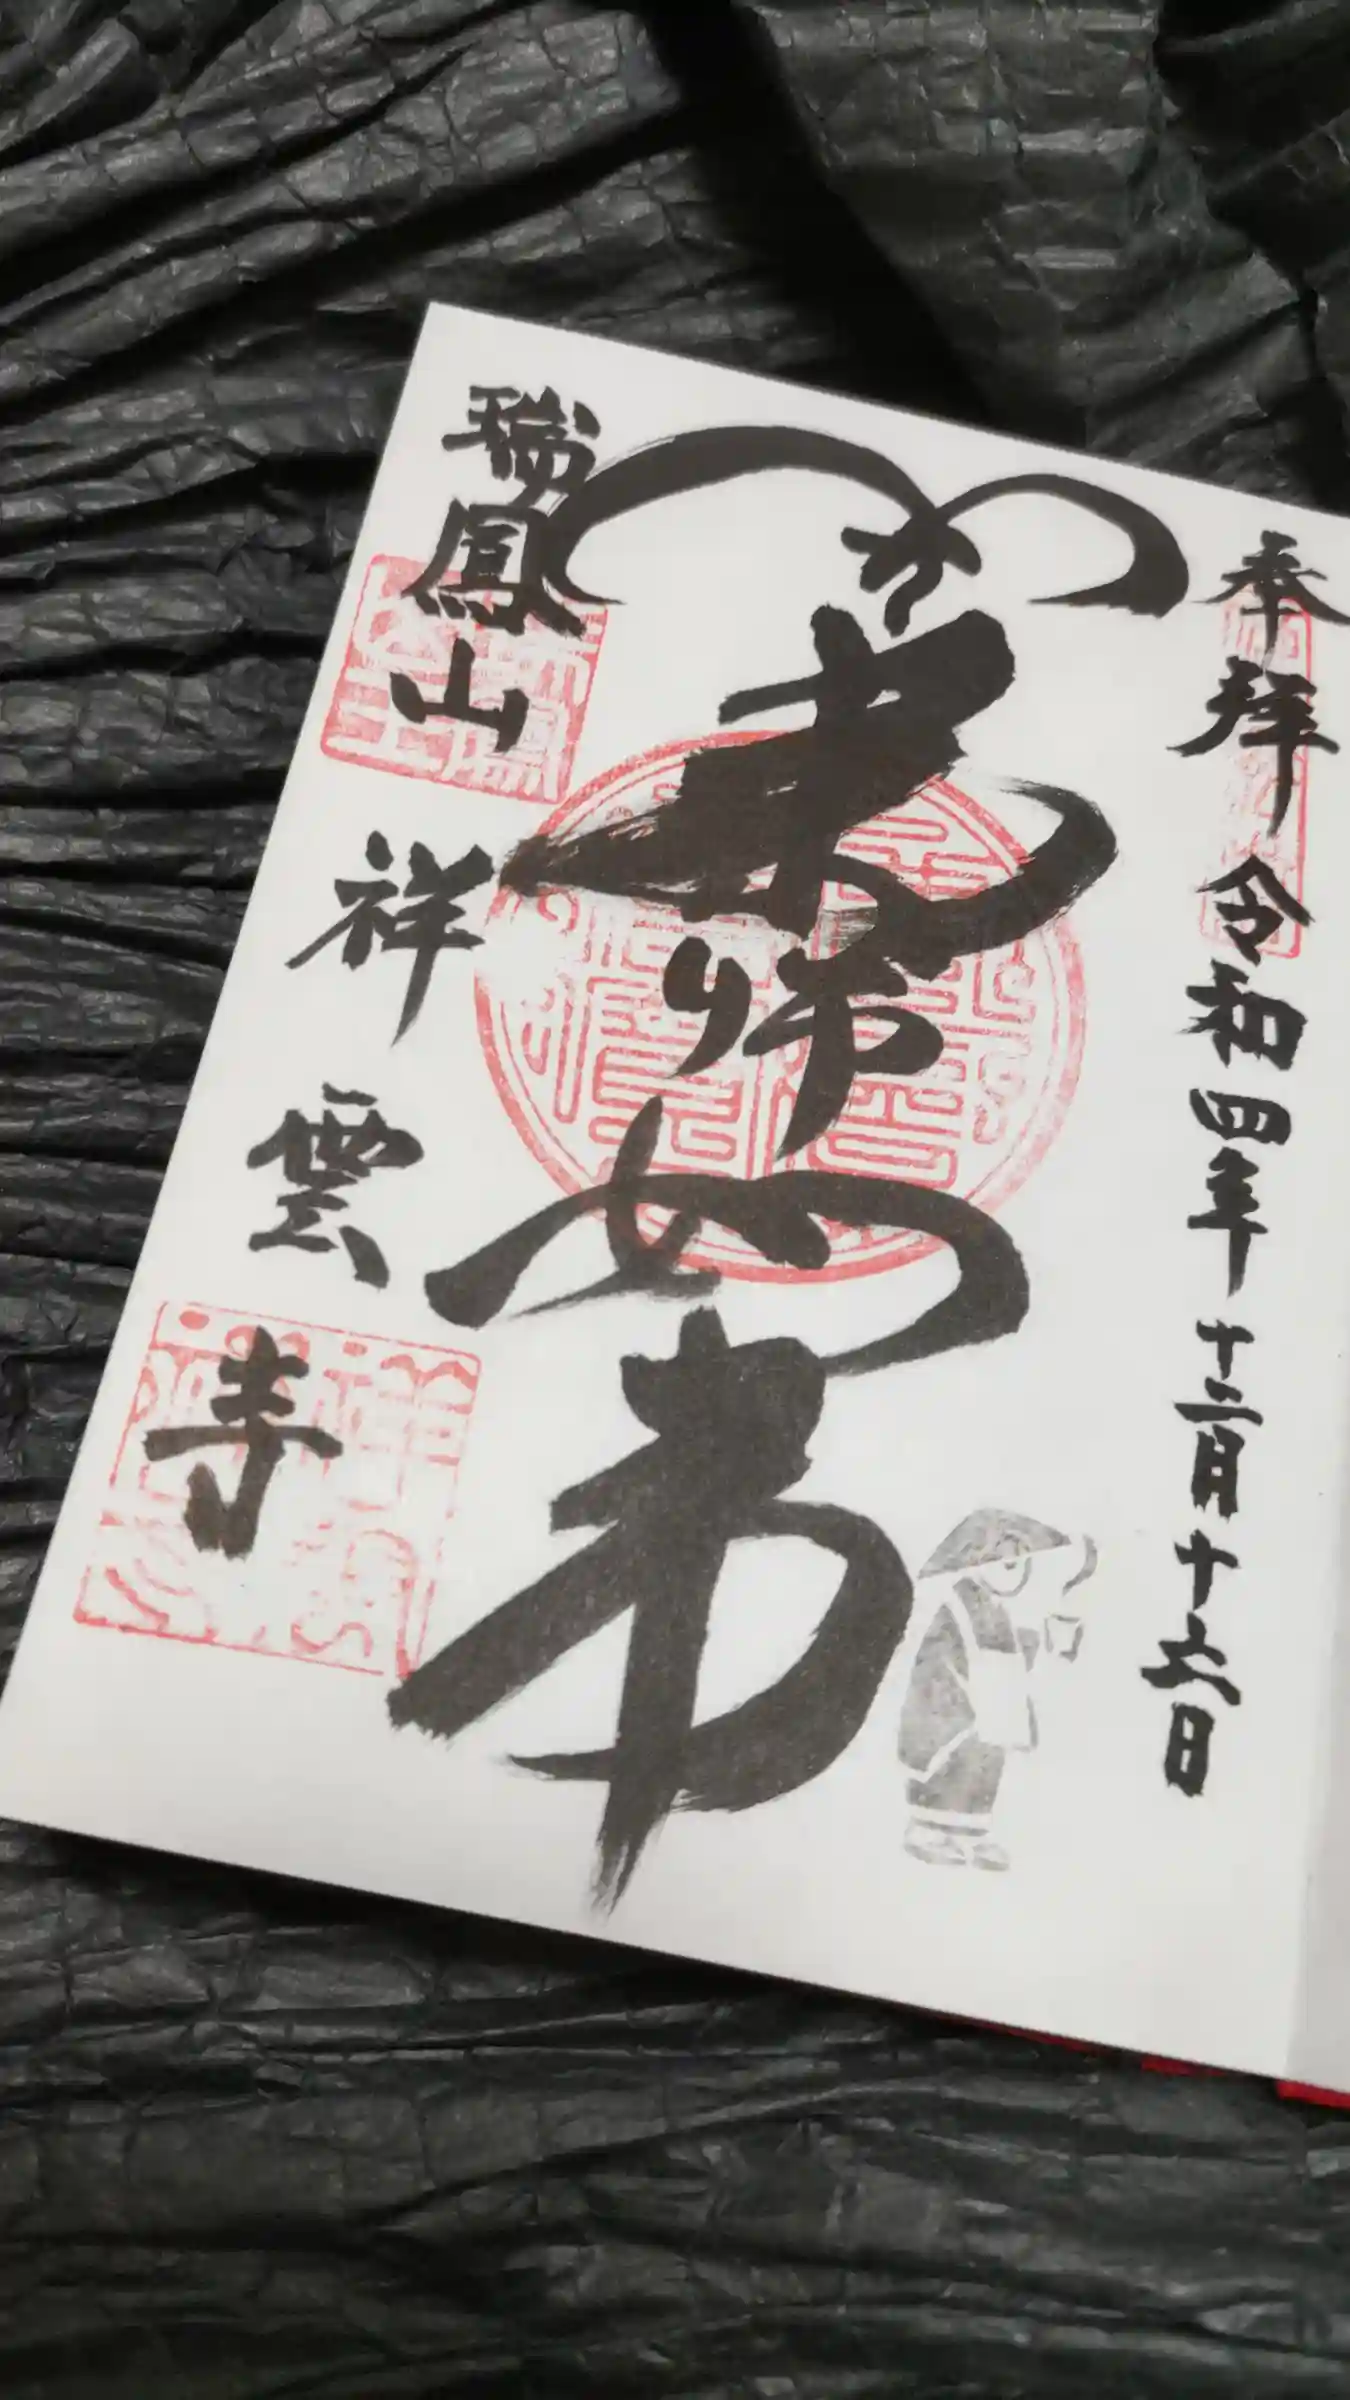 奉拝 令和四年十二月十六日
薬師如来
瑞鳳山 祥雲寺